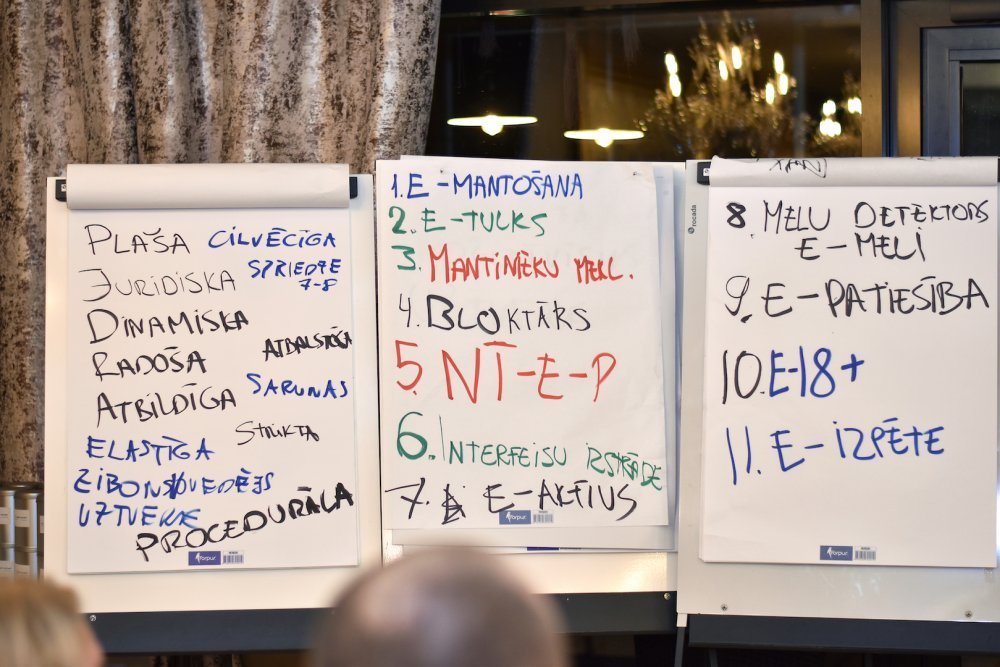 PLAŠA CILVĒCĪGA
JURIDISKA SPRIEDZE
7-8
DINAMISKA
RADOŠA ATBALSTOŠA
ATBILDĪGA SARUNAS
STRIKTA
ELASTĪGA
ZIBONSNOVEDĒJS
UZTVERE
PROCEDURĀLA
forpus
1. E-MANTOŠANA
2. E-TULKS
3. MANTINIEKU MEKL.
4. BLOKTĀRS
5. NĪ-E-P
6. INTERFEISU IZSTRĀDE
7. E-AKTĪVS
forpus
rocada
8. MELU DETEKTORS
E-MELI
9. E-PATIESĪBA
10. E-18+
11. E-IZPĒTE
forpus